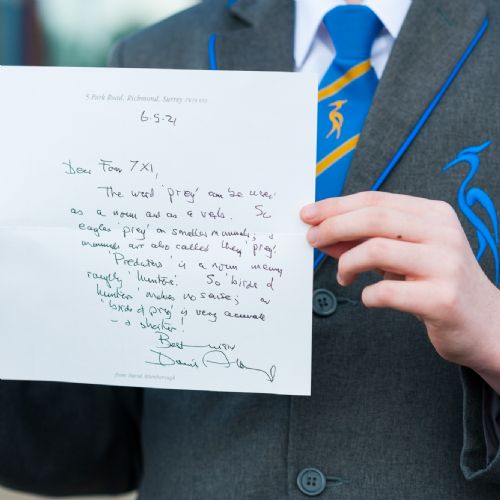 5 Park Road, Richmond, Surrey
6.5.21
Dear Form 7XI,
The word 'prey' can be used
as a noun and as a verb. So
eagles 'prey' on smaller mammals; &
mammals are also called their 'prey'.
'Predators' is a noun meaning
roughly 'hunters'. So 'birds of
hunter' makes no sense;
'birds of prey' is very accurate
– & shorter!
Best
David
from David Attenborough